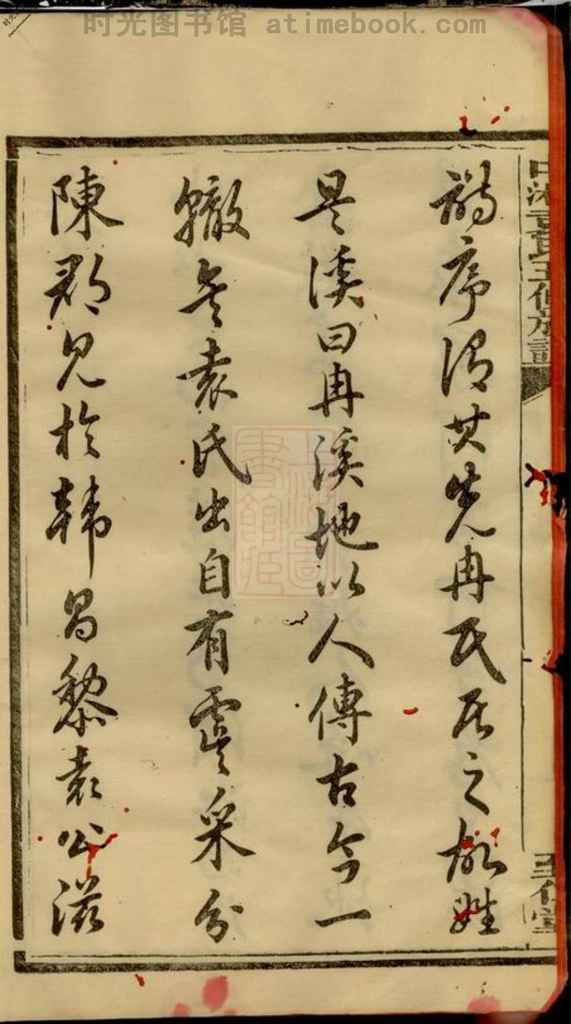 時光图书馆 atimebook.com
詩序謂其先冉氏居之故姓
是溪曰冉溪地以人傳古今一
轍矣袁氏出自有虞采分
陳郡見於韓昌黎袁公滋